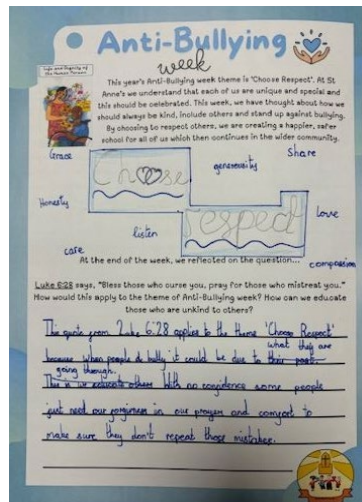 Anti-Bullying
week
Life and Dignity of
the Human Person
This year's Anti-Bullying week theme is 'Choose Respect'. At St
Anne's we understand that each of us are unique and special and
this should be celebrated. This week, we have thought about how we
should always be kind, include others and stand up against bullying.
By choosing to respect others, we are creating a happier, safer
school for all of us which then continues in the wider community.
Grace
Choose
generosity
Share
Honesty
respect
Love
listen
care
compassion
At the end of the week, we reflected on the question...
Luke 6:28 says, "Bless those who curse you, pray for those who mistreat you."
How would this apply to the theme of Anti-Bullying week? How can we educate
those who are unkind to others?
The quote from Luke 6:28 applies to the theme 'Choose Respect'
what they are
because when people do bully it could be due to their past.
going through.
This is us educate others With no confidence some people
just need our forgiveness in our prayers and comfort to
make sure they don't repeat those mistakes.